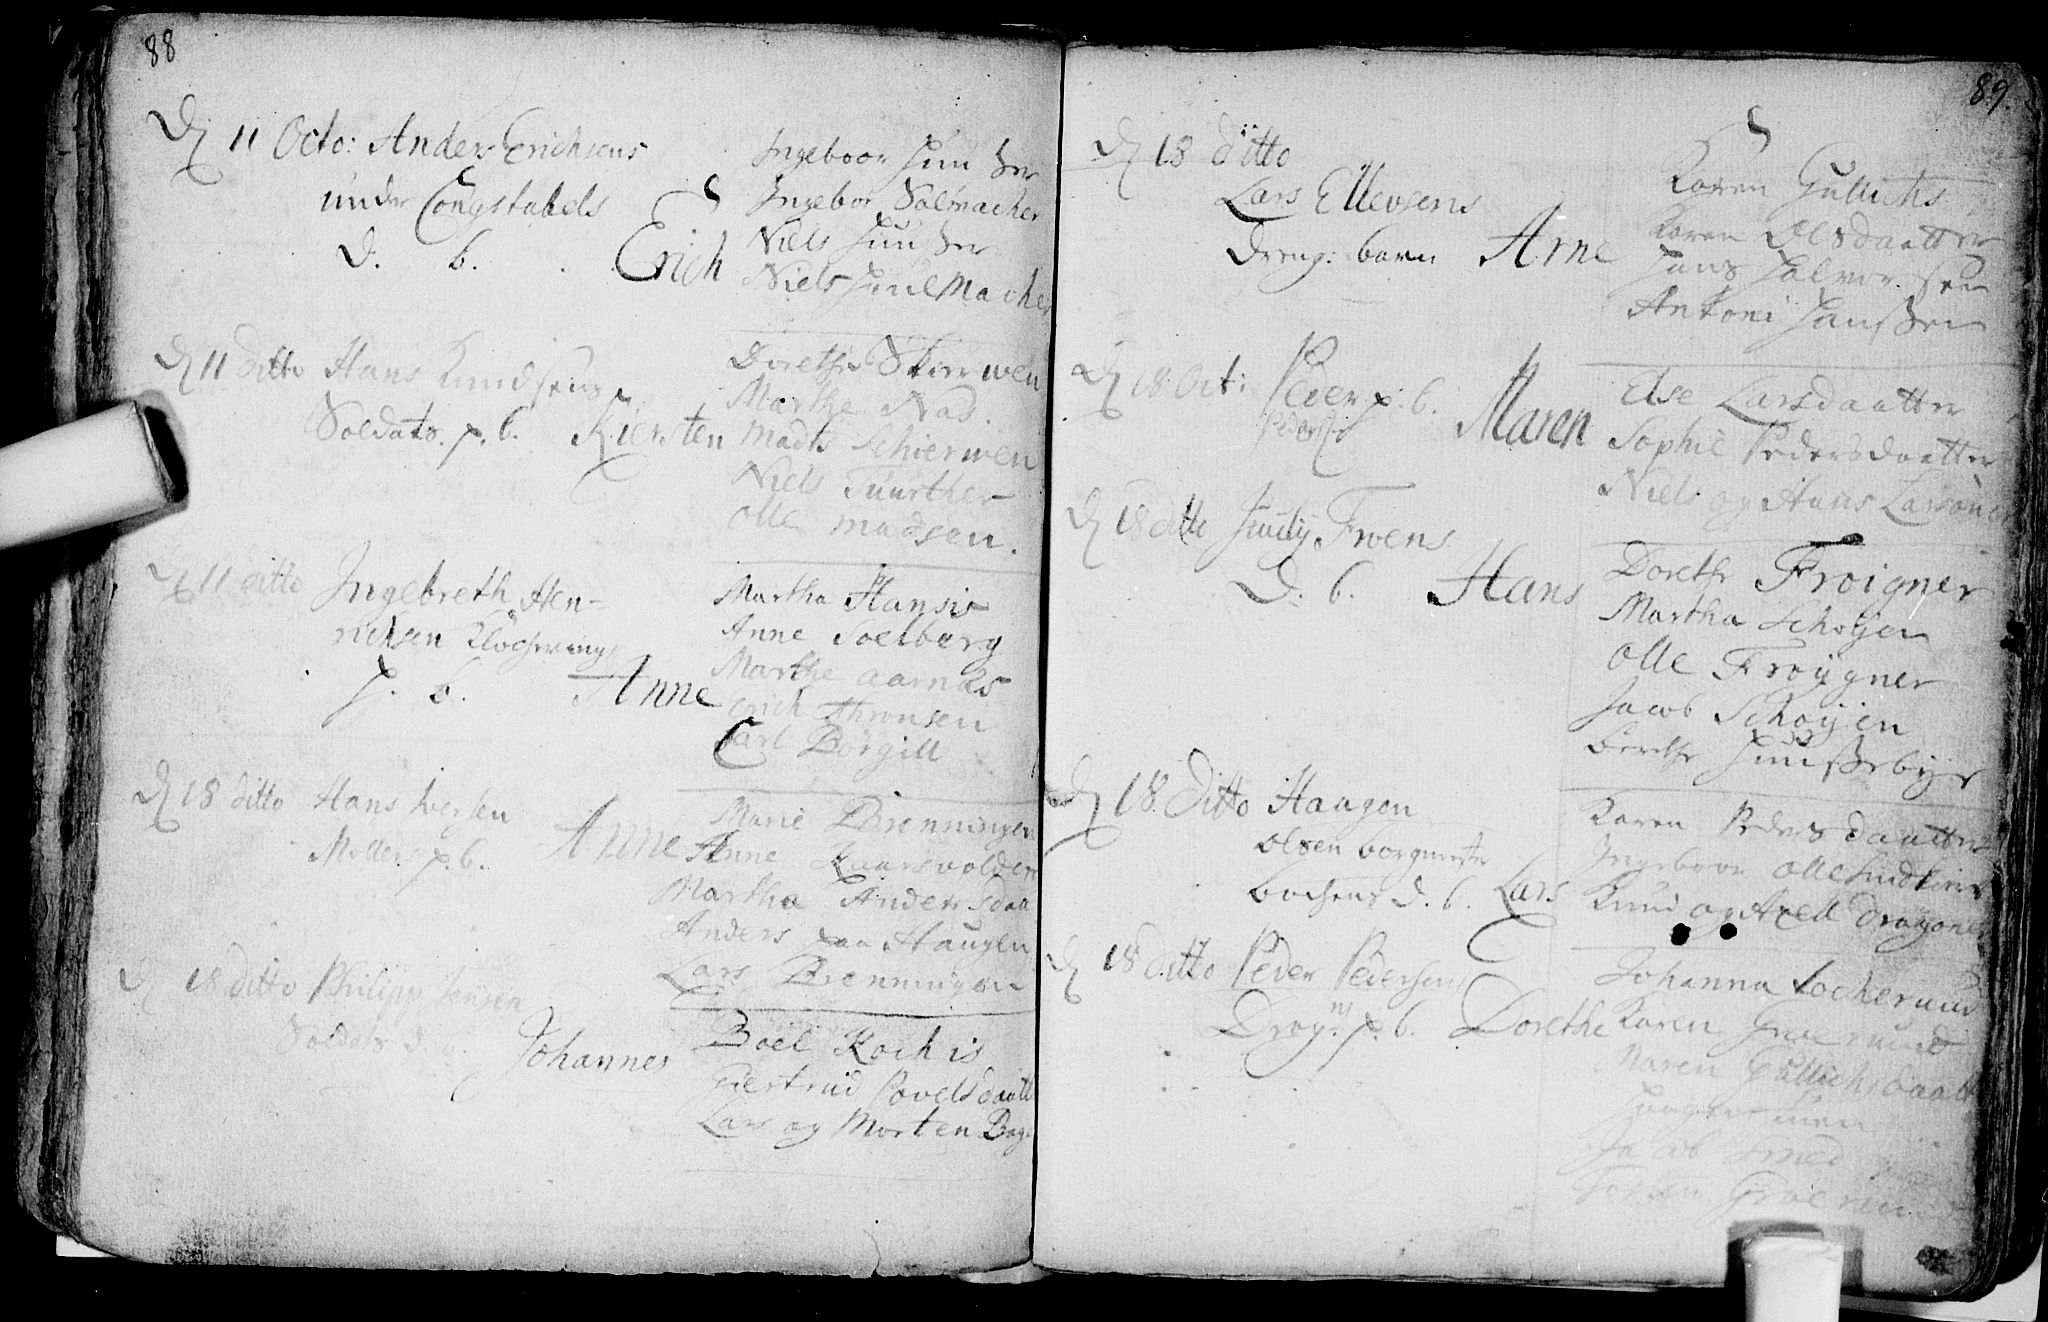 88
D 11 Octo: Anders Erichsens
under Congstabels
D. b. Erich
Ingeboor
Ingebor Solmacher
Niels
Niels Huulmacher
D 11 ditto Hans Knudsens
Soldats. p. b. Kiersten
Dorethe Skierwen
Marthe Næs
Mads Schierwen
Niels Tuurther
Olle Madsen.
D 11 ditto Ingebreth Hen-
richsen
p. b. Anne
Martha Hansis
Anne Soelberg
Marthe Aarnæs
Erich Thronsen
Carl Borgill
D 18 ditto Hans Iversen
Møllers p. b. Anne
Marie Brenningen
Anne Kaarsvolden
Martha Andersdaa
Anders paa Haugen
Lars Brenningen
D 18 ditto Philipp Jensen
Soldats d. b. Johannes
Boel Kochis
Giertrud Povelsdaatt
Lars og Morten Bag
89.
D 18 ditto
Lars Ellevsens
Dreng: barn Arne
Karen Gullichs
Karen Olsdaatter
Hans Halvorsen
Antoni Hansen
D 18 Oct: Peder p. b. Maren
Else Larsdaatter
Sophie Pedersdaatter
Niels og Hans Larsøner
D 18 ditto Froens
D. b. Hans
Dorethe Froigner
Martha Schoyen
Olle Froygner
Jacob Schoyen
Berthe Huusebye
D 18 Ditto Haagen
Olsen borgmester
D. b. Lars
Karen Pedersdaatter
Ingeboor Olle
Knud og Axell Dragoner
D 18 ditto Peder Pedersens
Drag: p. b. Dorethe
Johanna Locherud
Karen Graerud
Maren Gullichsdaatt
Jacob Smed